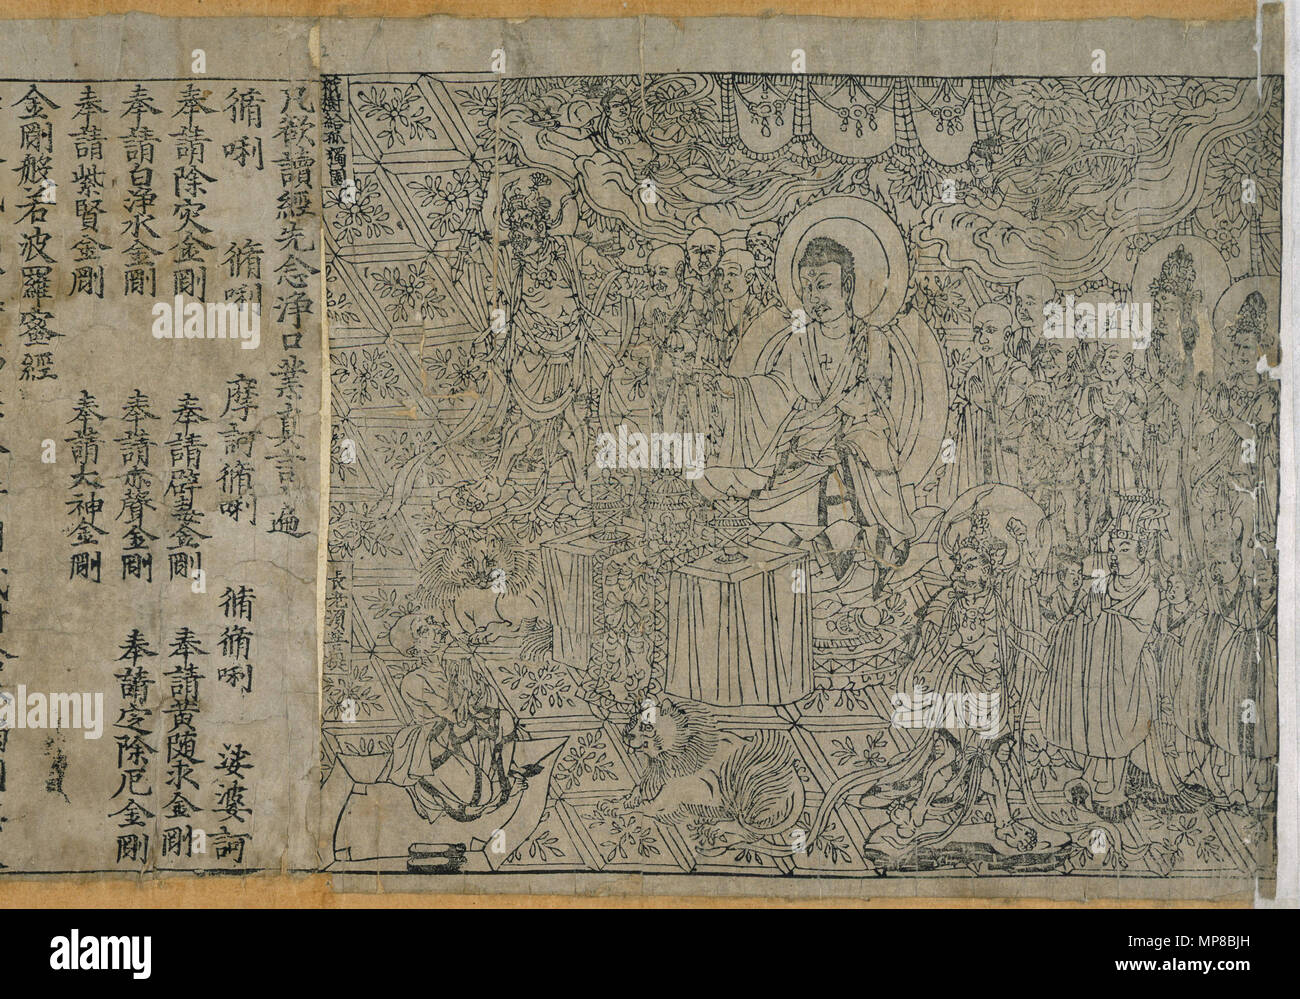 祇樹給孤獨園
長老須菩提
凡欲讀經先念淨口業真言遍
脩唎 脩唎 摩訶脩唎 脩脩唎 娑婆訶
奉請除灾金剛 奉請辟毒金剛 奉請黄随求金剛
奉請白淨水金剛 奉請赤聲金剛 奉請定除厄金剛
奉請紫賢金剛 奉請大神金剛
金剛般若波羅蜜經
alamy stock photo
MP8BJH
www.alamy.com